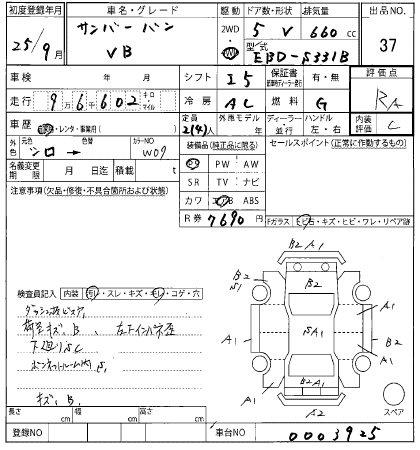 初度登録年月 車名・グレード 駆動 ドア数・形状 排気量 出品NO.
25/9月 サンバーバン VB 2WD 5 V 660 cc 37
型式 EBD-S331B
車検 年 月 シフト I5 保証書 有・無 評価点
走行 9万6千602 キロ マイル 冷房 AC 燃料 G RA
車歴 レンタ・事業用( ) 定員 2(4)人 外車モデル 年 ディーラー 並行 ハンドル 左・右 内装評価 C
外色 元色 シロ → 色替 カラーNO W09 装備品(純正品に限る) セールスポイント(正常に作動するもの)
名義変更期限 月 日迄 積載 t PS PW AW
注意事項(欠品・修復・不具合箇所および状態) SR TV ナビ
カワ エアB ABS
R券 7690 Fガラス(ヒ石・キズ・ヒビ・ワレ・リペア跡
B2 A1
B2 S1 B2
検査員記入 内装 汚レ・スレ・キズ・キレ・コゲ・穴
ダッシュ板ビスア
荷室キズ、B、左右インパネ歪
A1 SA1 A1 B2
下廻りSC
ボンネットルーム内S1
A1 B2A1 A1
キズ、B、
A2 スペア
長さ cm 幅 cm 高さ cm
登録NO 車台NO 0003925